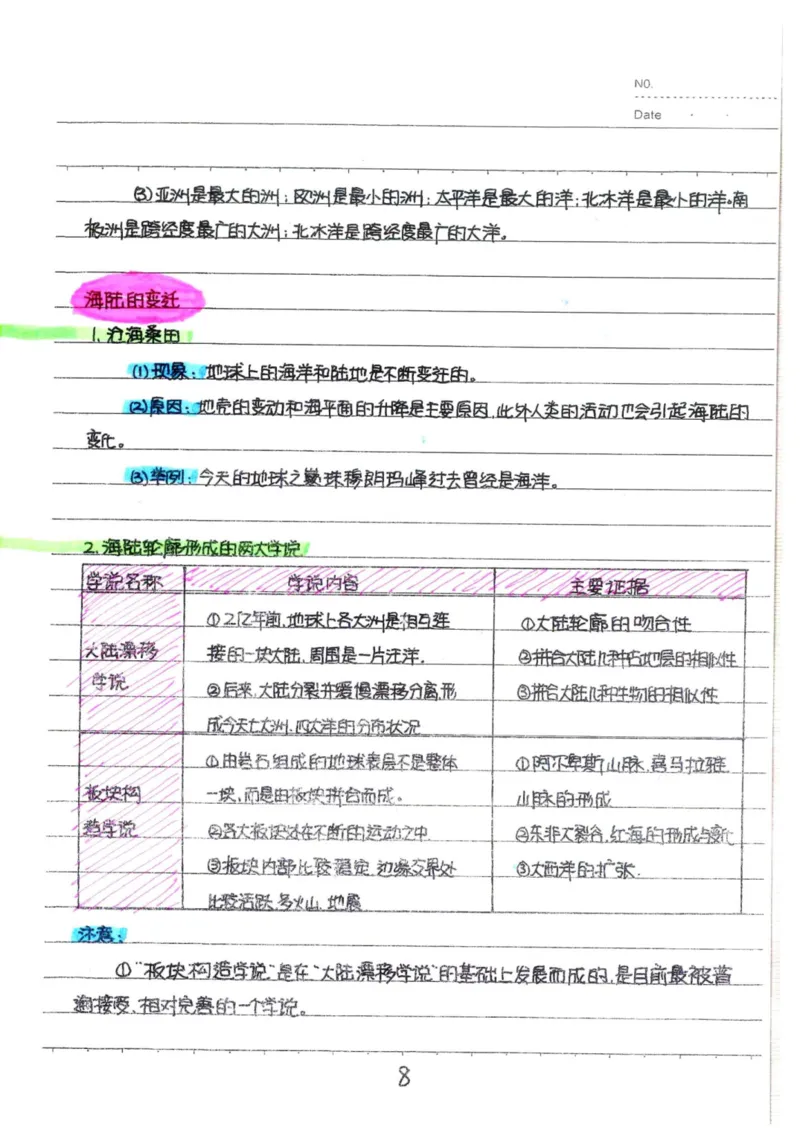 NO.
Date
(3)亚洲是最大的洲;欧洲是最小的洲;太平洋是最大的洋;北冰洋是最小的洋。南
极洲是跨经度最广的大洲;北冰洋是跨经度最广的大洋。
海陆的变迁
1.沧海桑田
(1)现象:地球上的海洋和陆地是不断变迁的。
(2)原因:地壳的变动和海平面的升降是主要原因,此外人类的活动也会引起海陆的
变化。
(3)举例:今天的地球之巅珠穆朗玛峰过去曾经是海洋。
2.海陆轮廓形成的两大学说
学说名称 学说内容 主要证据
大陆漂移
学说
①2亿年前,地球上各大洲是相互连
接的一块大陆,周围是一片汪洋。
②后来,大陆分裂并缓慢漂移分离,形
成今天七大洲、四大洋的分布状况
①大陆轮廓的吻合性
②拼合大陆几种古地层的相似性
③拼合大陆几种生物的相似性
板块构
造学说
①由岩石组成的地球表层不是整体
一块,而是由板块拼合而成。
②各大板块处在不断的运动之中
③板块内部比较稳定,边缘交界处
比较活跃,多火山、地震
①阿尔卑斯山脉、喜马拉雅
山脉的形成
②东非大裂谷,红海的形成与变化
③大西洋的扩张.
注意:
①“板块构造学说”是在“大陆漂移学说”的基础上发展而成的,是目前最被普
遍接受,相对完善的一个学说。
8